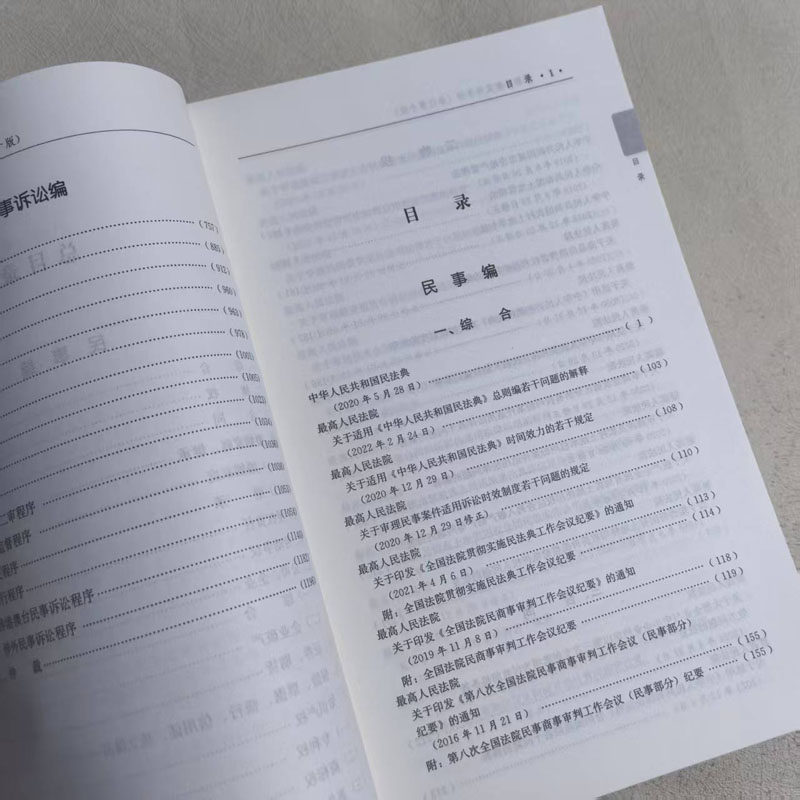 版）
事诉讼编
（757）
（885）
（912）
（960）
（963）
（978）
（1005）
二审程序
监督程序
程序
行程序
港澳台民事诉讼程序
涉外民事诉讼程序
仲 裁
目 录 · 1 ·
目录
目 录
民 事 编
一、综 合
中华人民共和国民法典
（2020 年 5 月 28 日）（ 1 ）
最高人民法院
关于适用《中华人民共和国民法典》总则编若干问题的解释
（2022 年 2 月 24 日）（103）
最高人民法院
关于适用《中华人民共和国民法典》时间效力的若干规定
（2020 年 12 月 29 日）（108）
最高人民法院
关于审理民事案件适用诉讼时效制度若干问题的规定
（2020 年 12 月 29 日修正）（110）
最高人民法院
关于印发《全国法院贯彻实施民法典工作会议纪要》的通知
（2021 年 4 月 6 日）（113）
附：全国法院贯彻实施民法典工作会议纪要（114）
最高人民法院
关于印发《全国法院民商事审判工作会议纪要》的通知
（2019 年 11 月 8 日）（118）
附：全国法院民商事审判工作会议纪要（119）
最高人民法院
关于印发《第八次全国法院民事商事审判工作会议（民事部分）
纪要》的通知
（2016 年 11 月 21 日）（155）
附：第八次全国法院民事商事审判工作会议（民事部分）纪要（155）